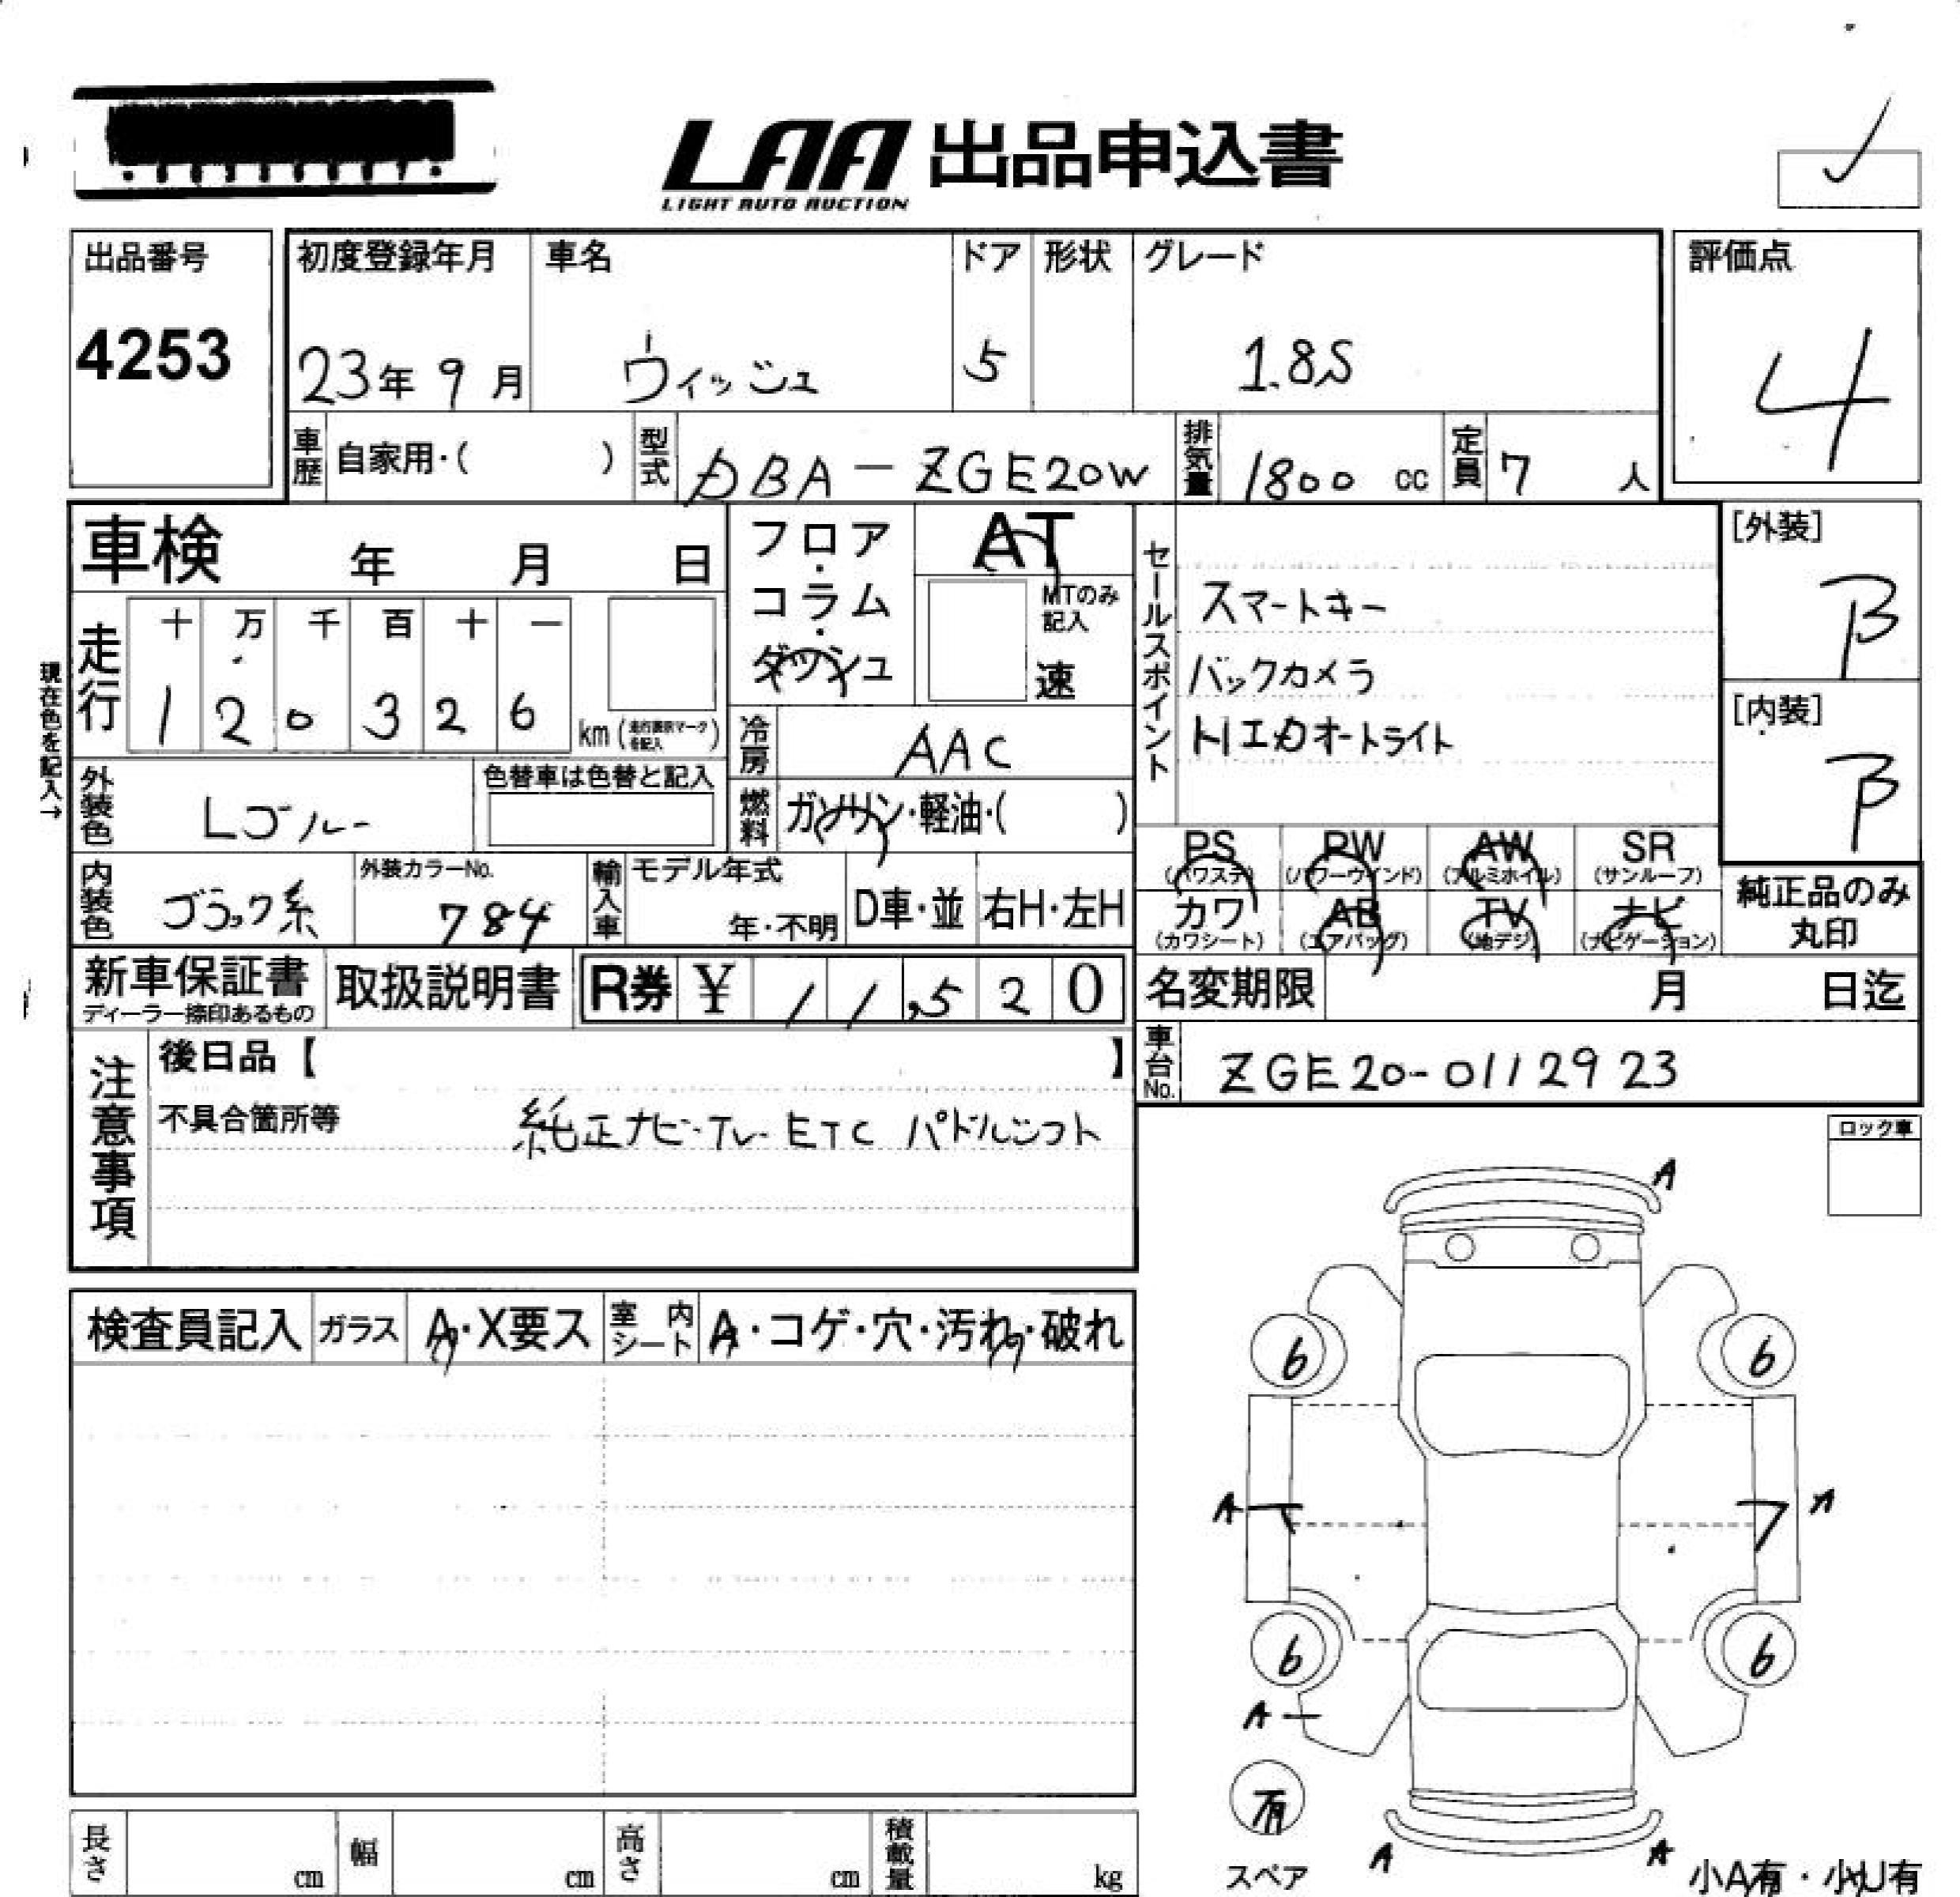 LAA 出品申込書
LIGHT AUTO AUCTION
出品番号
4253
初度登録年月
23年 9月
車名
ウィッシュ
ドア
5
形状
グレード
1.8S
評価点
4
車歴 自家用・( )
型式 DBA-ZGE20W
排気量 1800 cc
定員 7 人
車検 年 月 日
フロア・コラム・ダッシュ
AT
MTのみ記入
速
セールスポイント
スマートキー
バックカメラ
トリエカオートライト
[外装]
B
[内装]
B
現在色を記入→
走行
十 万 千 百 十 一
1 2 0 3 2 6 km (走行表示マークを記入)
冷房 AAC
燃料 ガソリン・軽油・( )
外装色 Lブルー
色替車は色替と記入
内装色 ブラック系
外装カラーNo.
784
輸入車 モデル年式
年・不明
D車・並 右H・左H
PS (パワステ) PW (パワーウインド) AW (アルミホイル) SR (サンルーフ)
カワ (カワシート) AB (エアバッグ) TV (地デジ) ナビ (ナビゲーション)
純正品のみ
丸印
新車保証書
ディーラー捺印あるもの
取扱説明書
R券 ¥ 11,520
名変期限 月 日迄
車台No. ZGE20-0112923
注意事項
後日品【 】
不具合箇所等
純正ナビ・TV・ETC パドルシフト
ロック車
検査員記入 ガラス A・X要ス 室内シート A・コゲ・穴・汚れ・破れ
A
6 6
A A
6 6
A
有
スペア
A A
小A有・小U有
長さ cm 幅 cm 高さ cm 積載量 kg